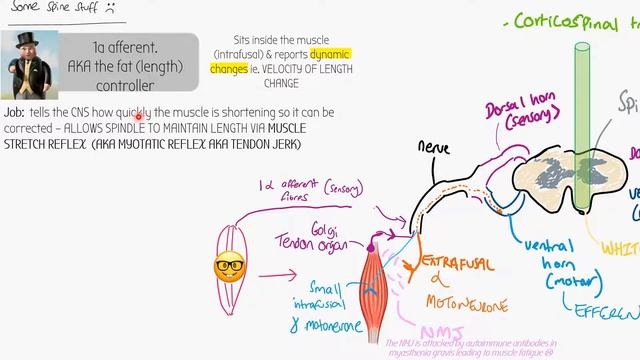 Some Spine Stuff :(
1a afferent.
AKA the fat (length)
controller
Sits inside the muscle
(intrafusal) & reports dynamic
changes ie. VELOCITY OF LENGTH
CHANGE
Job: tells the CNS how quickly the muscle is shortening so it can be
corrected – ALLOWS SPINDLE TO MAINTAIN LENGTH VIA MUSCLE
STRETCH REFLEX (AKA MYOTATIC REFLEX AKA TENDON JERK)
- Corticospinal t
Dorsal horn
(sensory)
Spi
nerve
1a afferent (sensory)
fibres
Golgi
Tendon organ
EXTRAFUSAL
α
MOTONEURONE
Small
intrafusal
γ motoneurone
NMJ
ventral
horn
(motor)
EFFEREN
WHIT
The NMJ is attacked by autoimmune antibodies in
myasthenia gravis leading to muscle fatigue :(